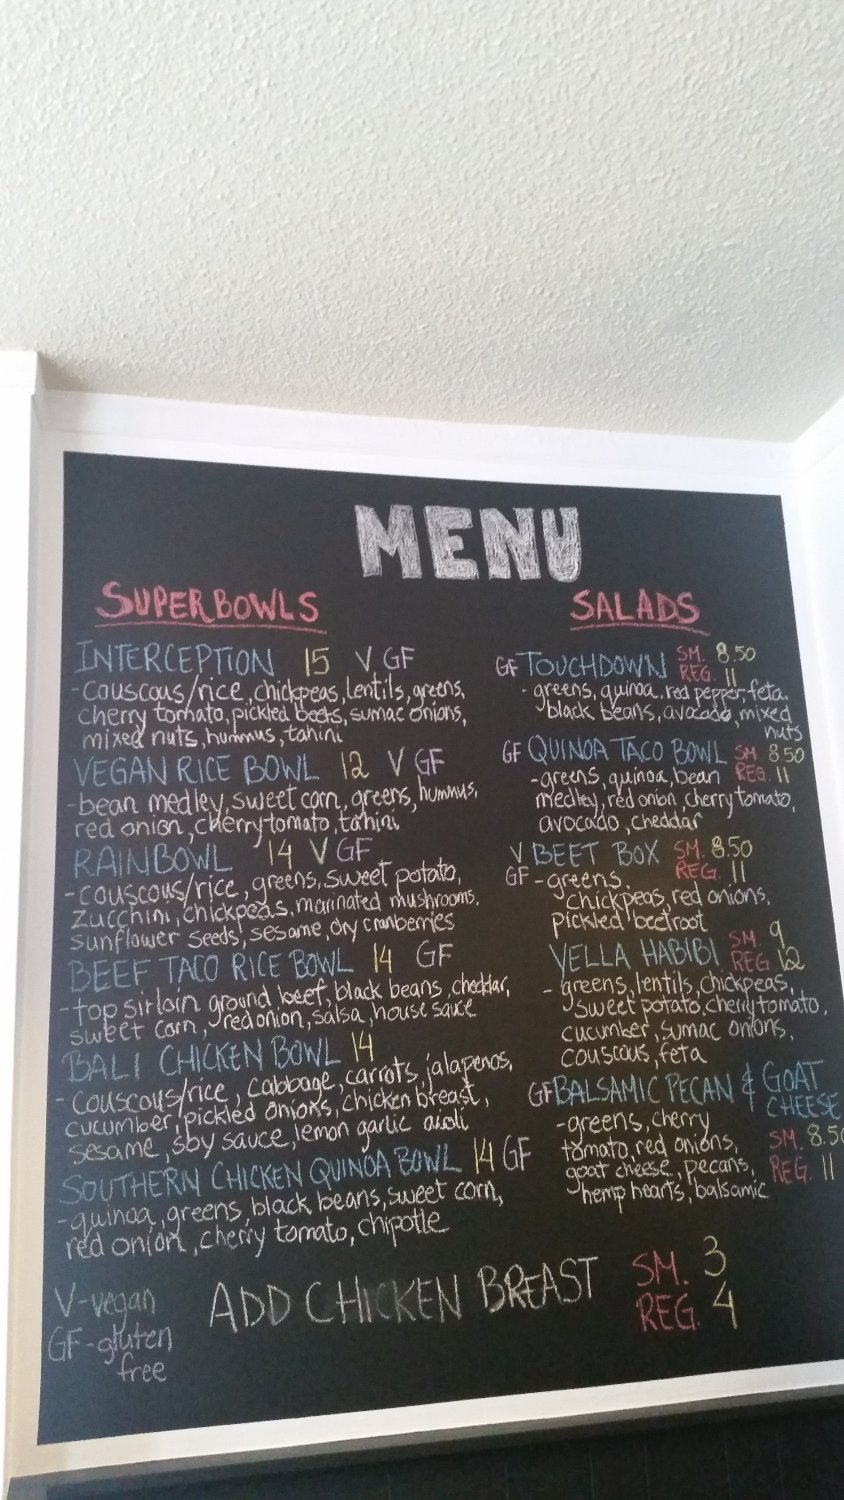 MENU
SUPERBOWLS
INTERCEPTION 15 V GF
-couscous/rice, chickpeas, lentils, greens,
cherry tomato, pickled beets, sumac onions,
mixed nuts, hummus, tahini
VEGAN RICE BOWL 12 V GF
-bean medley, sweet corn, greens, hummus,
red onion, cherry tomato, tahini
RAINBOWL 14 V GF
-couscous/rice, greens, sweet potato,
zucchini, chickpeas, marinated mushrooms,
sunflower seeds, sesame, dry cranberries
BEEF TACO RICE BOWL 14 GF
-top sirloin ground beef, black beans, cheddar,
sweet corn, red onion, salsa, house sauce
BALI CHICKEN BOWL 14
-couscous/rice, cabbage, carrots, jalapenos,
cucumber, pickled onions, chicken breast,
sesame, soy sauce, lemon garlic aioli
SOUTHERN CHICKEN QUINOA BOWL 14 GF
-quinoa, greens, black beans, sweet corn,
red onion, cherry tomato, chipotle
SALADS
GF TOUCHDOWN SM. 8.50
REG. 11
-greens, quinoa, red pepper, feta,
black beans, avocado, mixed
nuts
GF QUINOA TACO BOWL SM 8.50
-greens, quinoa, bean REG. 11
medley, red onion, cherry tomato,
avocado, cheddar
V BEET BOX SM. 8.50
GF -greens, REG. 11
chickpeas, red onions,
pickled beetroot
YELLA HABIBI SM. 9
REG 12
-greens, lentils, chickpeas,
sweet potato, cherry tomato,
cucumber, sumac onions,
couscous, feta
GF BALSAMIC PECAN & GOAT
CHEESE
-greens, cherry
tomato, red onions, SM. 8.50
goat cheese, pecans, REG. 11
hemp hearts, balsamic
V-vegan
GF-gluten
free
ADD CHICKEN BREAST SM. 3
REG. 4